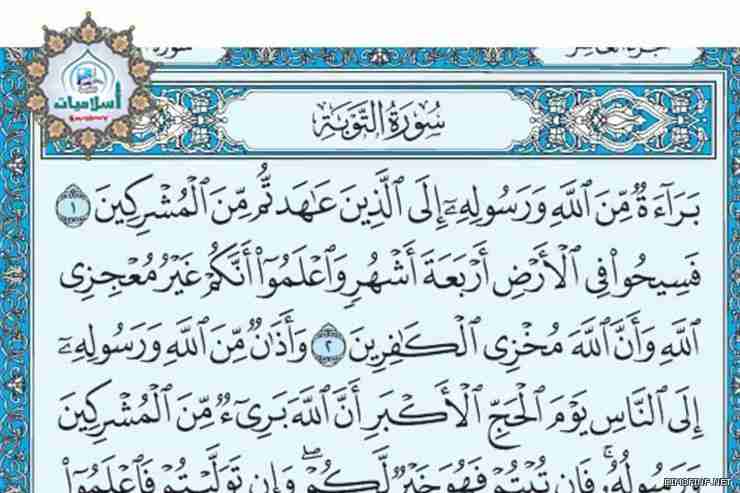 سورة
الجزء العاشر
أسلاميات
سُورَةُ التَّوْبَةِ
بَرَآءَةٌ مِّنَ ٱللَّهِ وَرَسُولِهِۦٓ إِلَى ٱلَّذِينَ عَٰهَدتُّم مِّنَ ٱلْمُشْرِكِينَ ١
فَسِيحُوا۟ فِى ٱلْأَرْضِ أَرْبَعَةَ أَشْهُرٍ وَٱعْلَمُوٓا۟ أَنَّكُمْ غَيْرُ مُعْجِزِى
ٱللَّهِ وَأَنَّ ٱللَّهَ مُخْزِى ٱلْكَٰفِرِينَ ٢ وَأَذَٰنٌ مِّنَ ٱللَّهِ وَرَسُولِهِۦٓ
إِلَى ٱلنَّاسِ يَوْمَ ٱلْحَجِّ ٱلْأَكْبَرِ أَنَّ ٱللَّهَ بَرِىٓءٌ مِّنَ ٱلْمُشْرِكِينَ
وَرَسُولُهُۥ ۚ فَإِن تُبْتُمْ فَهُوَ خَيْرٌ لَّكُمْ ۖ وَإِن تَوَلَّيْتُمْ فَٱعْلَمُوٓا۟